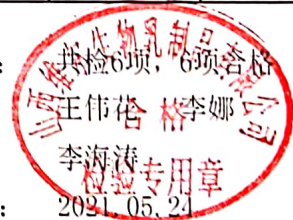 ：共检6项，6项合格
王伟花 李娜
李海涛
：2021.05.24
山西 生物乳制品有限公司
合格
检验专用章